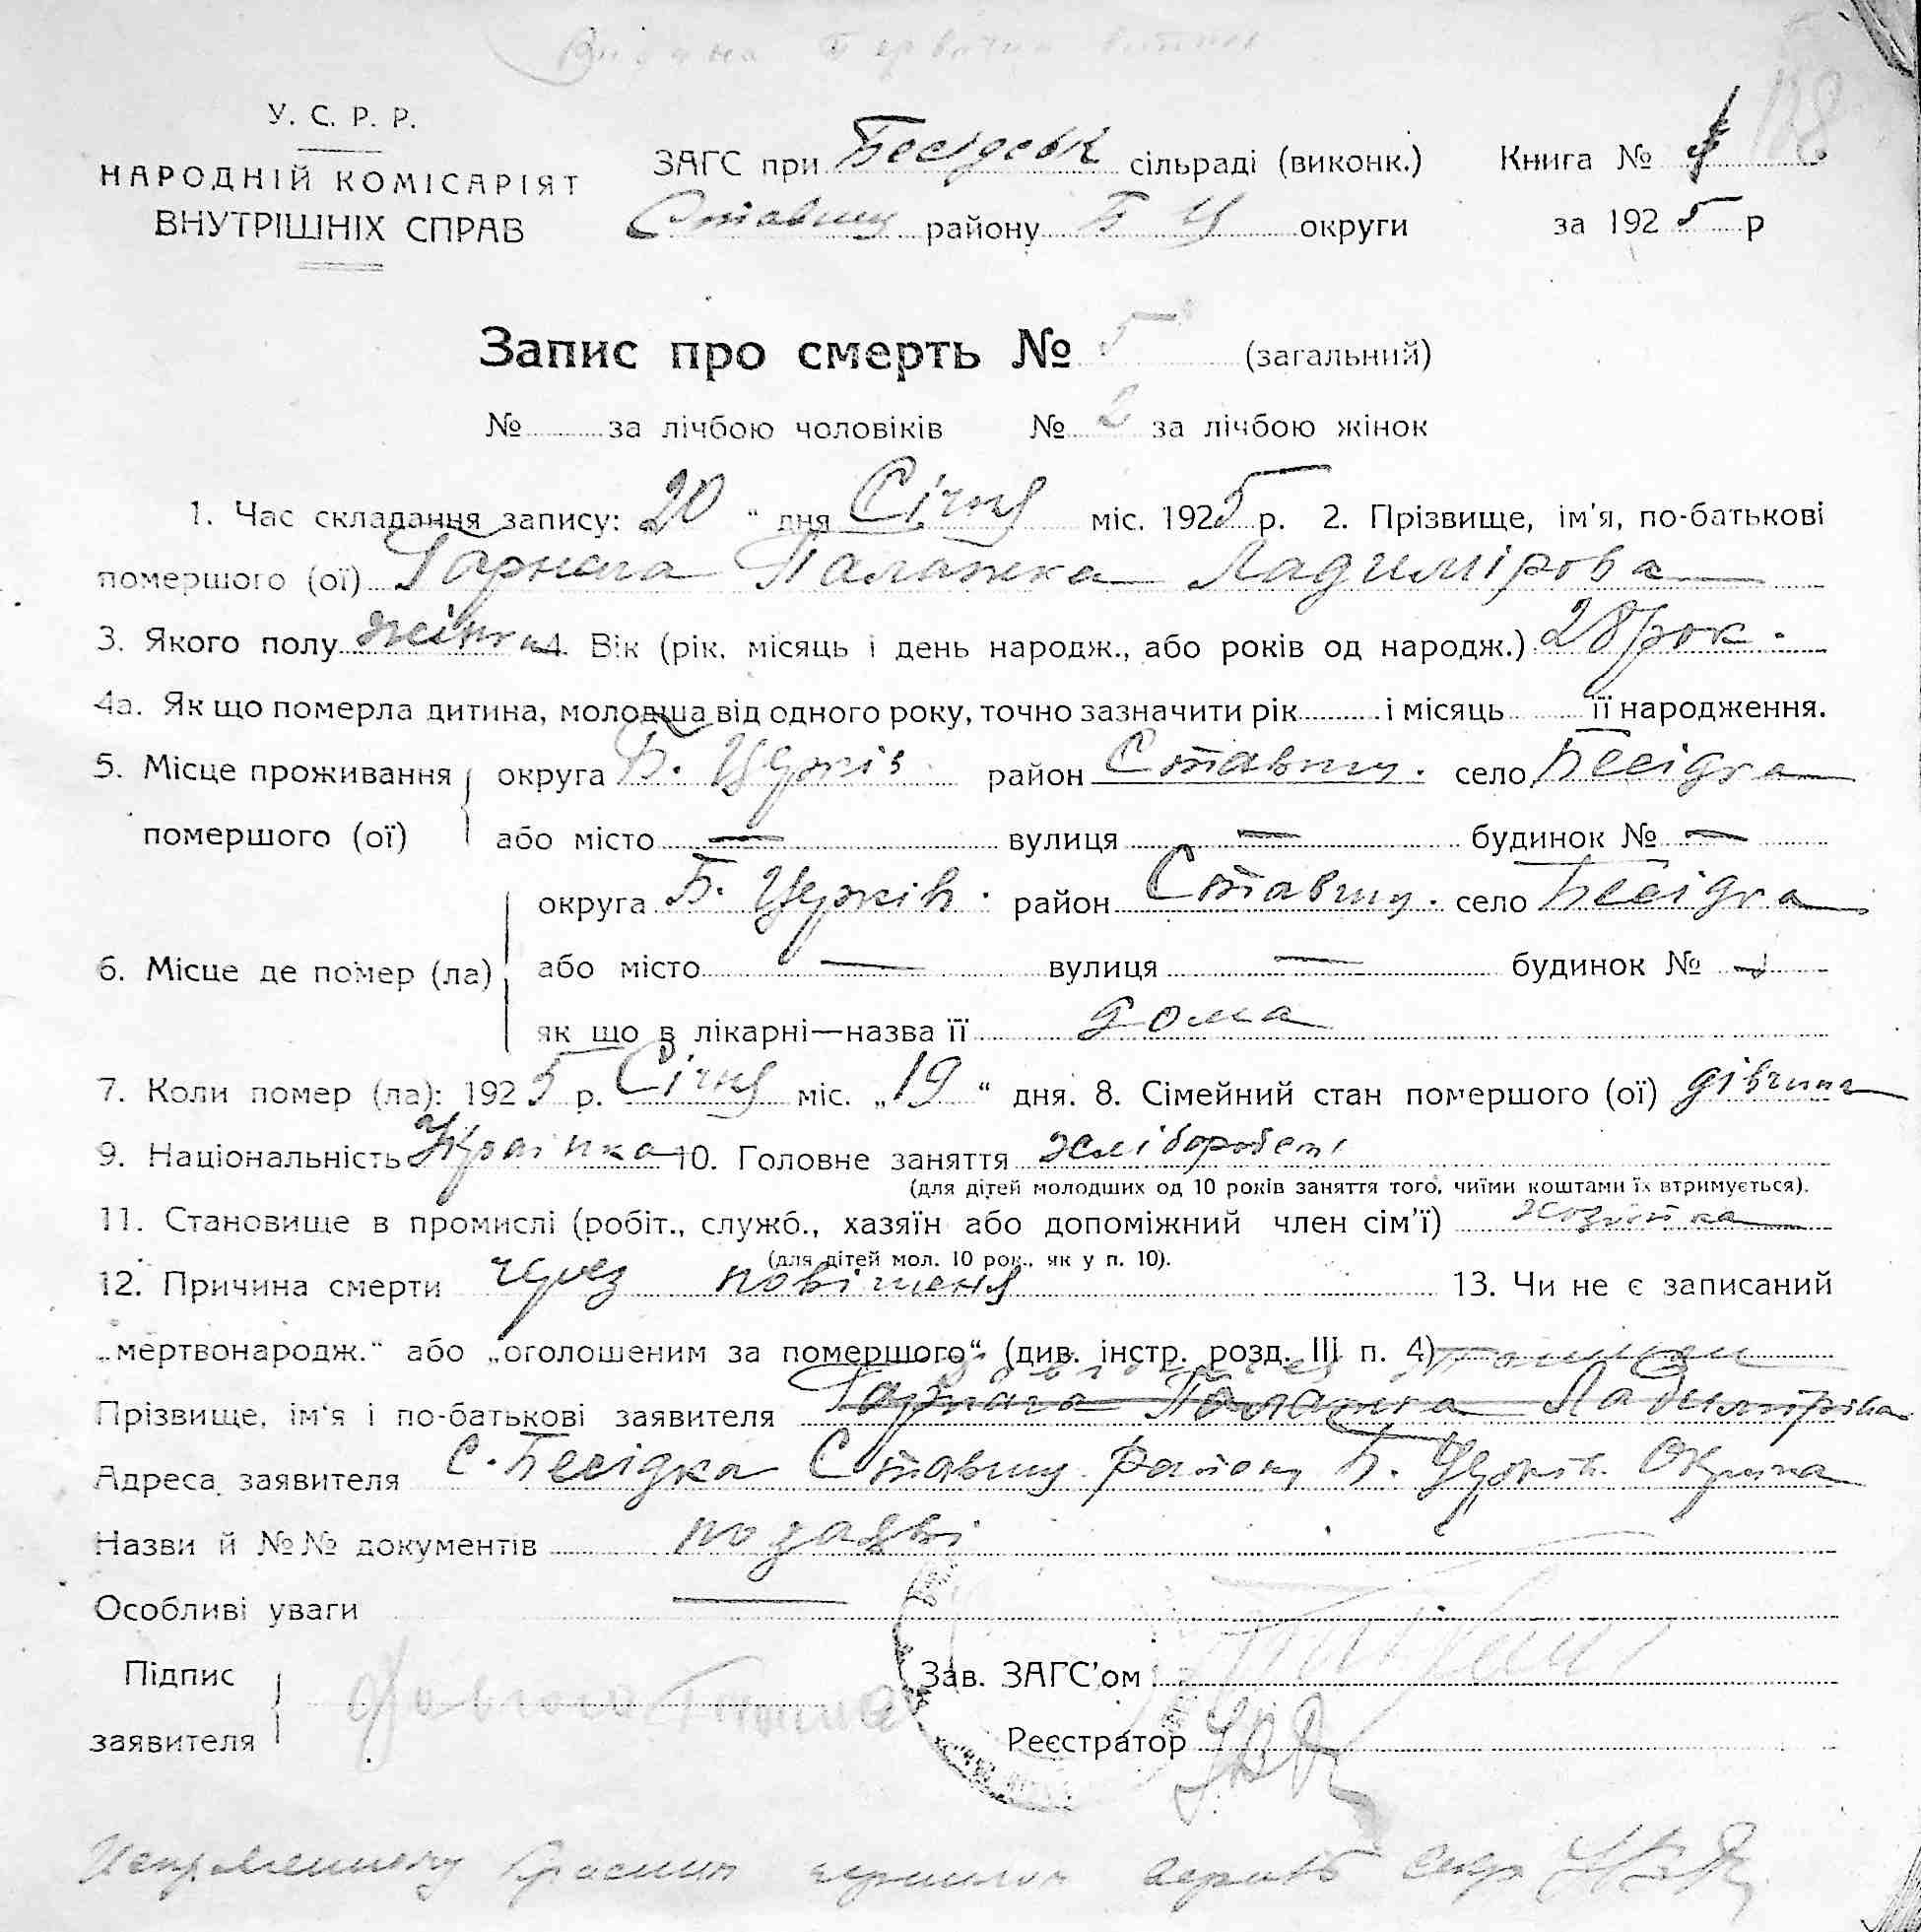 У. С. Р. Р.
НАРОДНІЙ КОМІСАРІЯТ
ВНУТРІШНІХ СПРАВ
ЗАГС при Бесідськ сільраді (виконк.) Книга № 4 108
Ставищ району Б Ц округи за 1925 р
Запис про смерть № 5 (загальний)
№ за лічбою чоловіків № 2 за лічбою жінок
1. Час складання запису: 20 " дня Січня міс. 1925 р. 2. Прізвище, ім'я, по-батькові
помершого (ої) Гарнага Палажка Ладимірова
3. Якого полу жінка 4. Вік (рік, місяць і день народж., або років од народж.) 28 рок.
4а. Як що померла дитина, молодша від одного року, точно зазначити рік і місяць її народження.
5. Місце проживання округа Б. Церків. район Ставищ. село Бесідка
помершого (ої) або місто — вулиця — будинок № —
округа Б. Церків. район Ставищ. село Бесідка
6. Місце де помер (ла) або місто — вулиця — будинок № —
як що в лікарні—назва її дома
7. Коли помер (ла): 1925 р. Січня міс. „19 " дня. 8. Сімейний стан помершого (ої) дівчина
9. Національність Українка 10. Головне заняття хліборобст
(для дітей молодших од 10 років заняття того, чиїми коштами їх втримується).
11. Становище в промислі (робіт., служб., хазяїн або допоміжний член сім'ї) хозяйка
(для дітей мол. 10 рок., як у п. 10).
12. Причина смерти через повішеня 13. Чи не є записаний
„мертвонародж." або „оголошеним за помершого" (див. інстр. розд. III п. 4)
Прізвище, ім'я і по-батькові заявителя Гарнага Палажка Ладимірова
Адреса заявителя с. Бесідка Ставищ. району Б. Церків. Округа
Назви й №№ документів по заяві
Особливі уваги —
Підпис
заявителя
Зав. ЗАГС'ом
Реєстратор